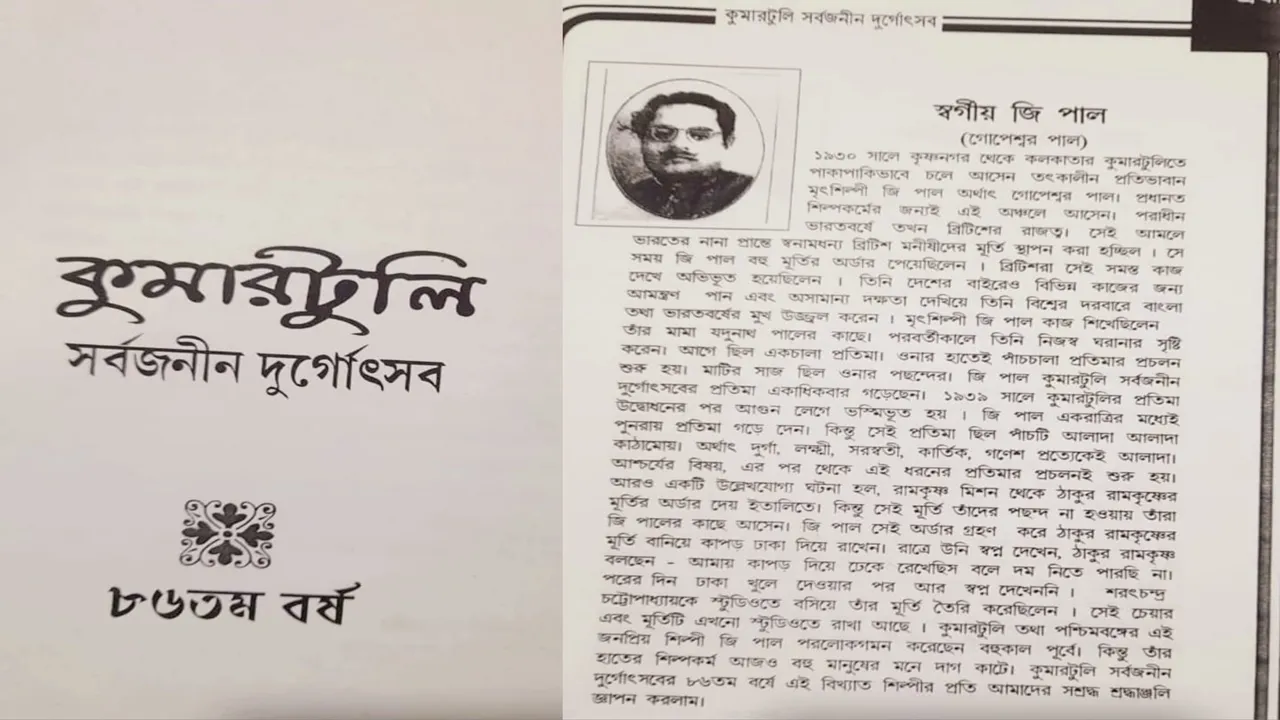 কুমারটুলি
সর্বজনীন দুর্গোৎসব
৮৬তম বর্ষ
কুমারটুলি সর্বজনীন দুর্গোৎসব
স্বর্গীয় জি পাল
(গোপেশ্বর পাল)
১৯৩০ সালে কৃষ্ণনগর থেকে কলকাতার কুমারটুলিতে
পাকাপাকিভাবে চলে আসেন তৎকালীন প্রতিভাবান
মৃৎশিল্পী জি পাল অর্থাৎ গোপেশ্বর পাল। প্রধানত
শিল্পকর্মের জন্যই এই অঞ্চলে আসেন। পরাধীন
ভারতবর্ষে তখন ব্রিটিশের রাজত্ব। সেই আমলে
ভারতের নানা প্রান্তে স্বনামধন্য ব্রিটিশ মনীষীদের মূর্তি স্থাপন করা হচ্ছিল । সে
সময় জি পাল বহু মূর্তির অর্ডার পেয়েছিলেন । ব্রিটিশরা সেই সমস্ত কাজ
দেখে অভিভূত হয়েছিলেন । তিনি দেশের বাইরেও বিভিন্ন কাজের জন্য
আমন্ত্রণ পান এবং অসামান্য দক্ষতা দেখিয়ে তিনি বিশ্বের দরবারে বাংলা
তথা ভারতবর্ষের মুখ উজ্জ্বল করেন । মৃৎশিল্পী জি পাল কাজ শিখেছিলেন
তাঁর মামা যদুনাথ পালের কাছে। পরবর্তীকালে তিনি নিজস্ব ঘরানার সৃষ্টি
করেন। আগে ছিল একচালা প্রতিমা। ওনার হাতেই পাঁচচালা প্রতিমার প্রচলন
শুরু হয়। মাটির সাজ ছিল ওনার পছন্দের। জি পাল কুমারটুলি সর্বজনীন
দুর্গোৎসবের প্রতিমা একাধিকবার গড়েছেন। ১৯৩৯ সালে কুমারটুলির প্রতিমা
উদ্বোধনের পর আগুন লেগে ভস্মিভূত হয় । জি পাল একরাত্রির মধ্যেই
পুনরায় প্রতিমা গড়ে দেন। কিন্তু সেই প্রতিমা ছিল পাঁচটি আলাদা আলাদা
কাঠামোয়। অর্থাৎ দুর্গা, লক্ষ্মী, সরস্বতী, কার্তিক, গণেশ প্রত্যেকেই আলাদা।
আশ্চর্যের বিষয়, এর পর থেকে এই ধরনের প্রতিমার প্রচলনই শুরু হয়।
আরও একটি উল্লেখযোগ্য ঘটনা হল, রামকৃষ্ণ মিশন থেকে ঠাকুর রামকৃষ্ণের
মূর্তির অর্ডার দেয় ইতালিতে। কিন্তু সেই মূর্তি তাঁদের পছন্দ না হওয়ায় তাঁরা
জি পালের কাছে আসেন। জি পাল সেই অর্ডার গ্রহণ করে ঠাকুর রামকৃষ্ণের
মূর্তি বানিয়ে কাপড় ঢাকা দিয়ে রাখেন। রাত্রে উনি স্বপ্ন দেখেন, ঠাকুর রামকৃষ্ণ
বলছেন – আমায় কাপড় দিয়ে ঢেকে রেখেছিস বলে দম নিতে পারছি না।
পরের দিন ঢাকা খুলে দেওয়ার পর আর স্বপ্ন দেখেননি । শরৎচন্দ্র
চট্টোপাধ্যায়কে স্টুডিওতে বসিয়ে তাঁর মূর্তি তৈরি করেছিলেন । সেই চেয়ার
এবং মূর্তিটি এখনো স্টুডিওতে রাখা আছে । কুমারটুলি তথা পশ্চিমবঙ্গের এই
জনপ্রিয় শিল্পী জি পাল পরলোকগমন করেছেন বহুকাল পূর্বে। কিন্তু তাঁর
হাতের শিল্পকর্ম আজও বহু মানুষের মনে দাগ কাটে। কুমারটুলি সর্বজনীন
দুর্গোৎসবের ৮৬তম বর্ষে এই বিখ্যাত শিল্পীর প্রতি আমাদের সশ্রদ্ধ শ্রদ্ধাঞ্জলি
জ্ঞাপন করলাম।